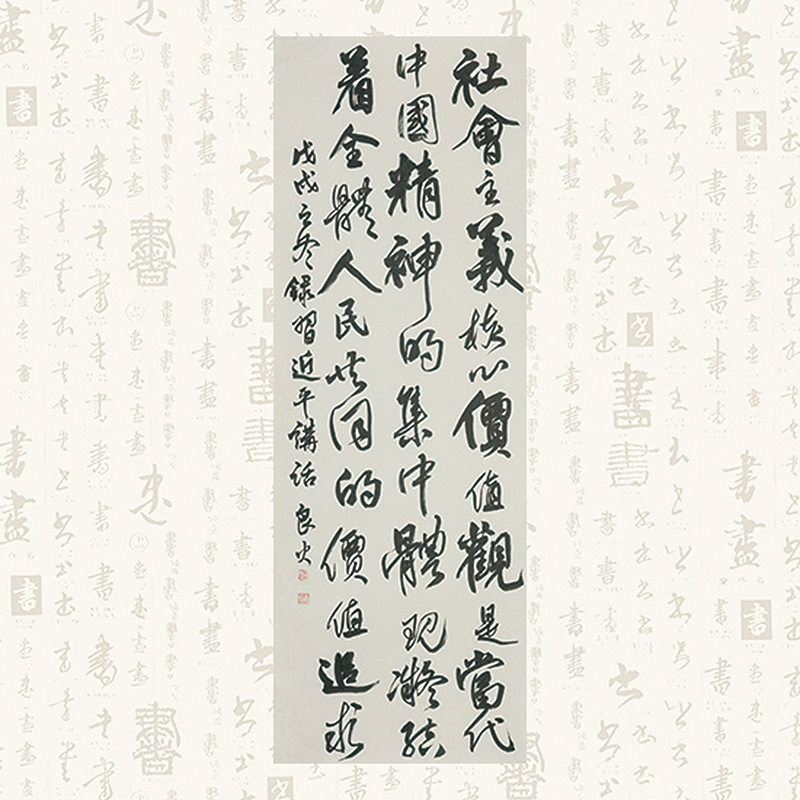 社會主義核心價值觀是當代
中國精神的集中體現凝結
着全體人民共同的價值追求
戊戌立冬錄習近平講話 良火